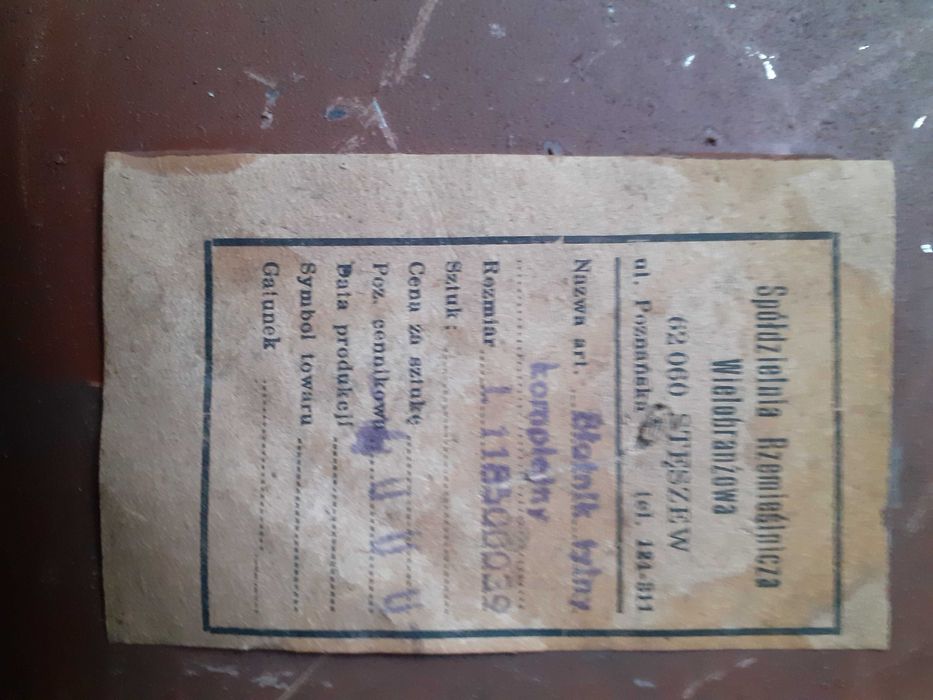 Spółdzielnia Rzemieślnicza
Wielobranżowa
62 060 STĘSZEW
ul. Poznańska tel. 134-811
Nazwa art. Błotnik tylny
kompletny
Rozmiar L 118500039
Sztuk:
Cena za sztukę
Poz. cennikowa
Data produkcji
Symbol towaru
Gatunek